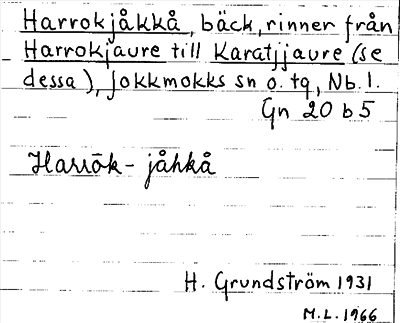 Harrokjåkkå, bäck, rinner från
Harrokjaure till Karatjjaure (se
dessa), Jokkmokks sn o. tg, Nb. l.
Gn 20 b 5
Harrōk-jåhkå
H. Grundström 1931
M.L. 1966